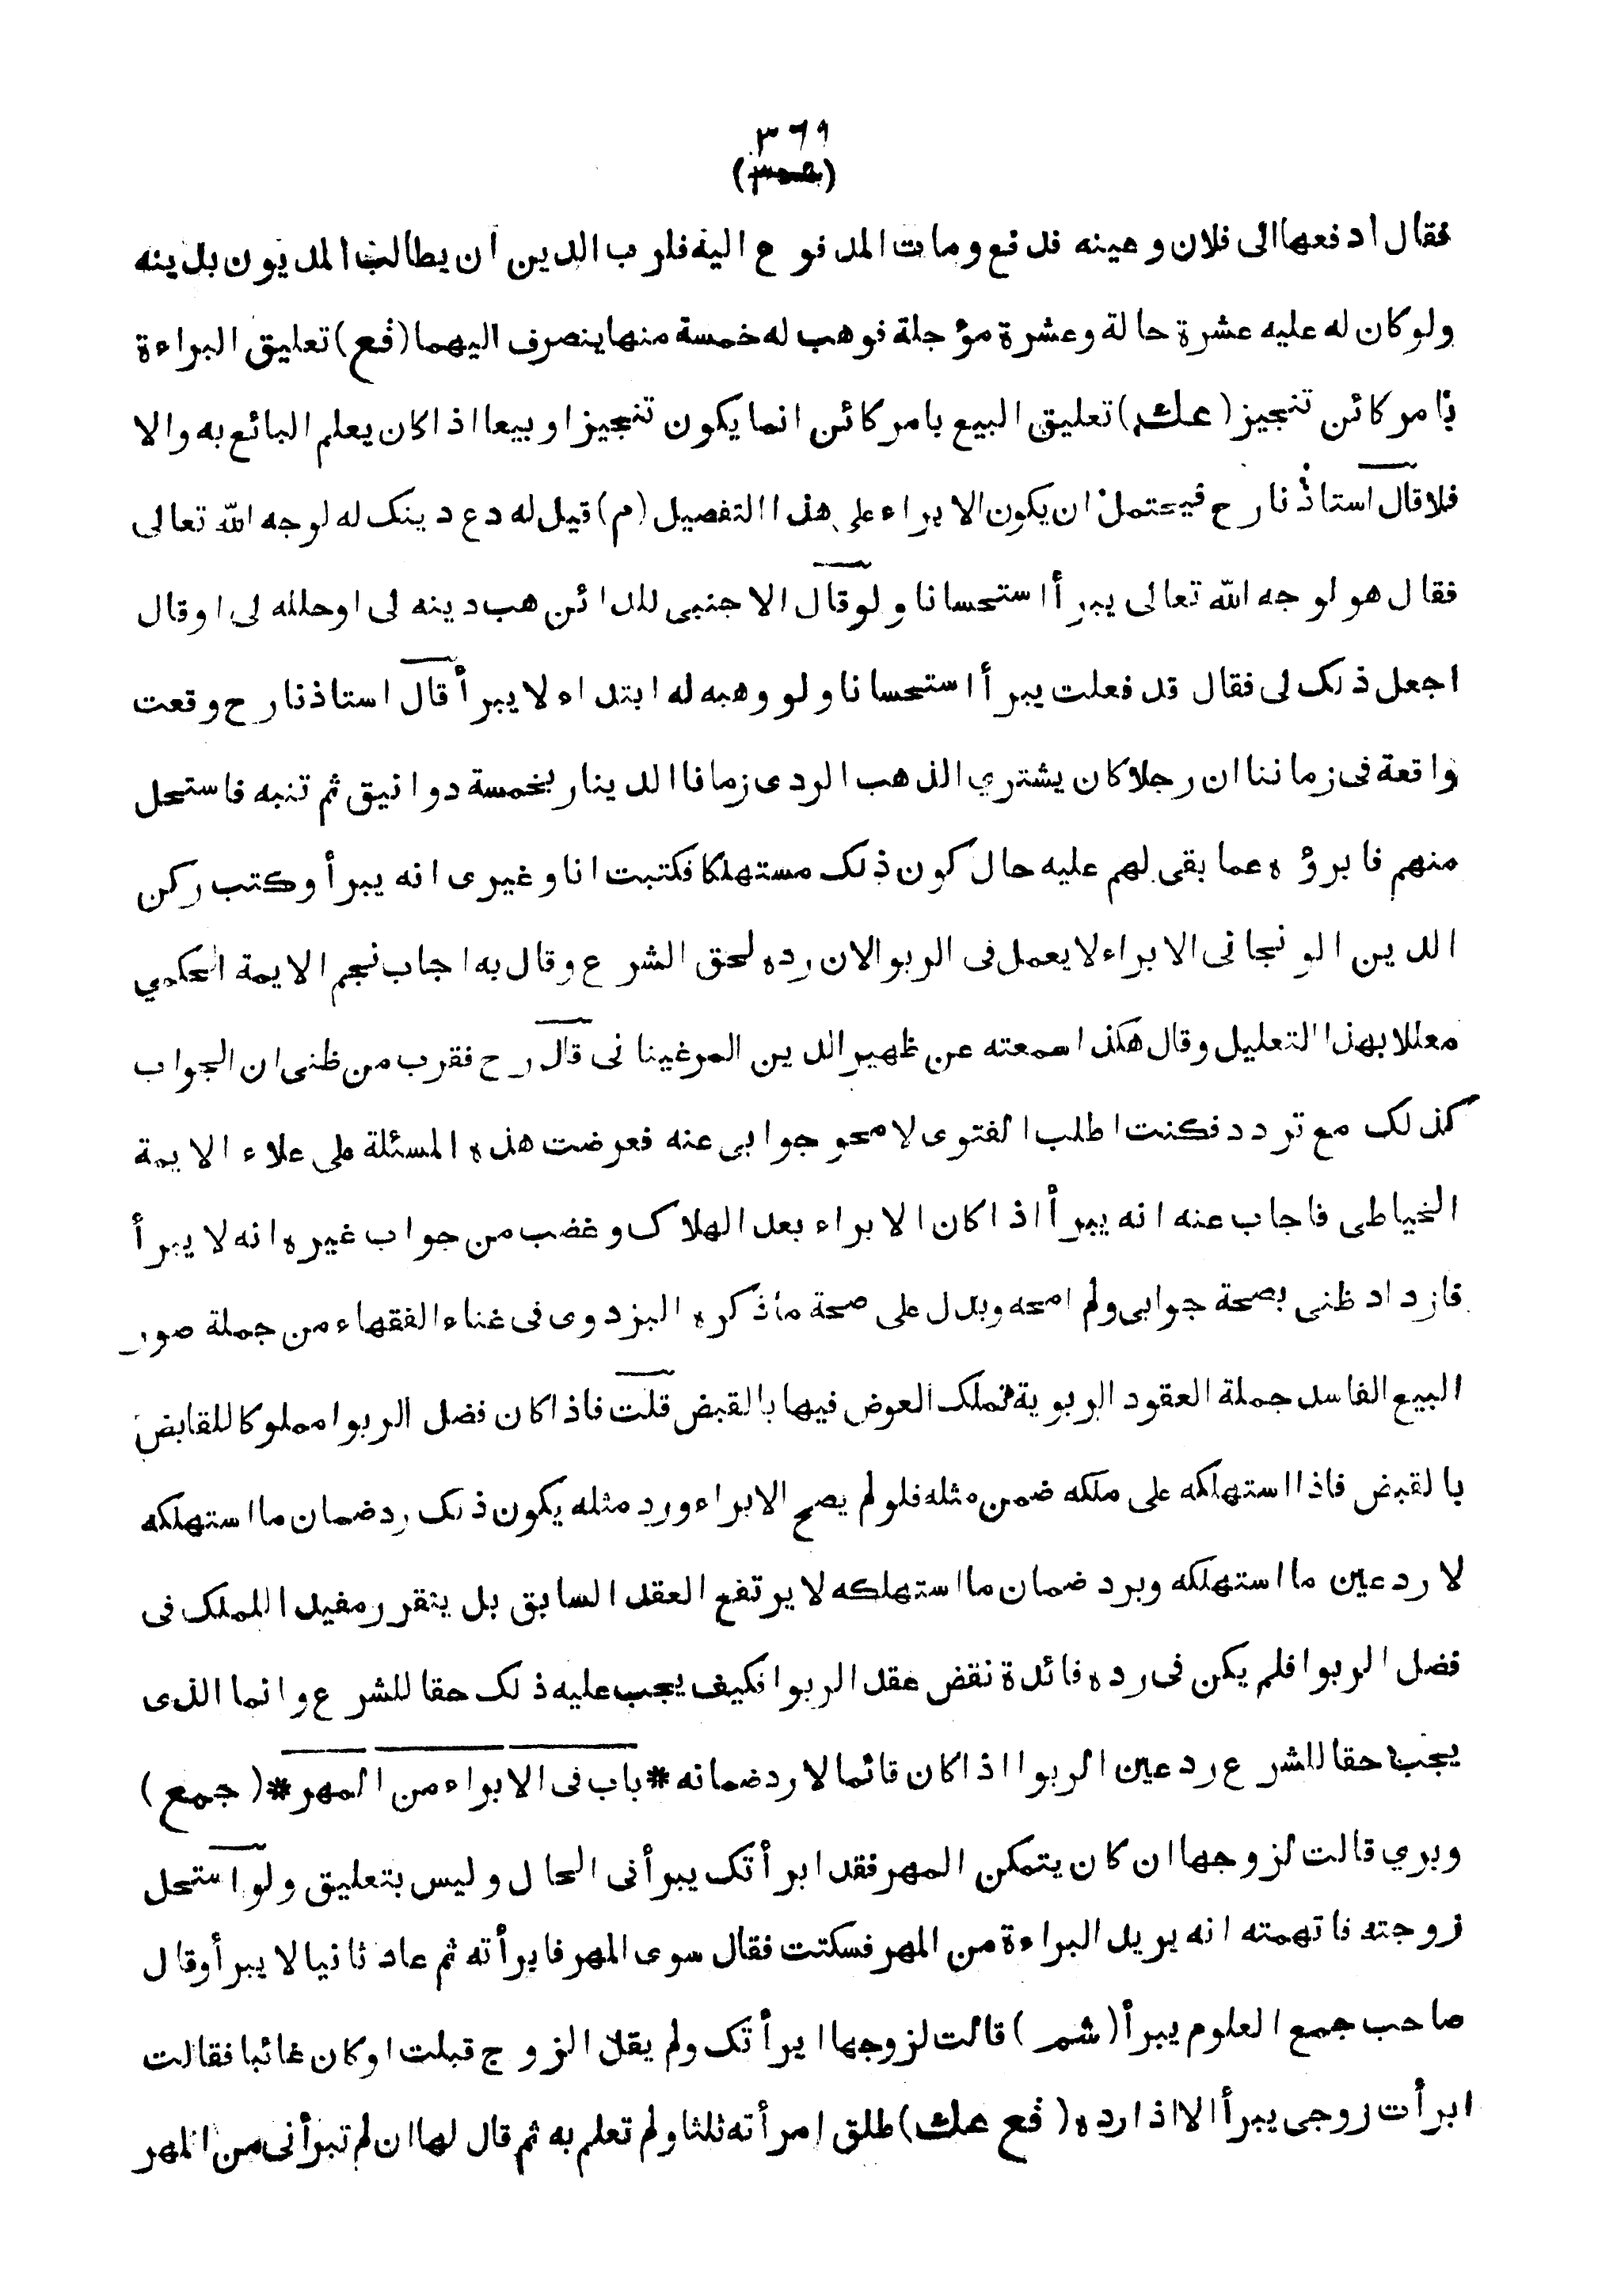 ٣٦٩
فقال ادفعها الى فلان وعينه فدفع ومات المدفوع اليه فلرب الدين ان يطالب المديون بدينه
ولو كان له عليه عشرة حالة وعشرة مؤجلة فوهب له خمسة منها ينصرف اليهما (فع) تعليق البراءة
بامر كائن تنجيز (عك) تعليق البيع بامر كائن انما يكون تنجيزا وبيعا اذا كان يعلم البائع به والا
فلا قال استاذنا رح فيحتمل ان يكون الابراء على هذا التفصيل (م) قيل له دع دينك له لوجه الله تعالى
فقال هو لوجه الله تعالى يبرأ استحسانا ولو قال الاجنبى للدائن هب دينه لى او حلله لى او قال
اجعل ذلك لى فقال قد فعلت يبرأ استحسانا ولو وهبه له ابتداء لا يبرأ قال استاذنا رح وقعت
واقعة فى زماننا ان رجلا كان يشترى الذهب الردى زمانا الدينار بخمسة دوانيق ثم تنبه فاستحل
منهم فابرؤه عما بقى لهم عليه حال كون ذلك مستهلكا فكتبت انا وغيرى انه يبرأ وكتب ركن
الدين الونجانى الابراء لا يعمل فى الربوا لان رده لحق الشرع وقال به اجاب نجم الايمة الحكمي
معللا بهذا التعليل وقال هكذا سمعته عن ظهير الدين المرغينانى قال رح فقرب من ظنى ان الجواب
كذلك مع تردد فكنت اطلب الفتوى لا محو جوابى عنه فعرضت هذه المسئلة على علاء الايمة
الخياطى فاجاب عنه انه يبرأ اذا كان الابراء بعد الهلاك وغضب من جواب غيره انه لا يبرأ
فازداد ظنى بصحة جوابى ولم امحه ويدل على صحة ما ذكره البزدوى فى غناء الفقهاء من جملة صور
البيع الفاسد جملة العقود الربوية تملك العوض فيها بالقبض قلت فاذا كان فضل الربوا مملوكا للقابض
بالقبض فاذا استهلكه على ملكه ضمن مثله فلو لم يصح الابراء ورد مثله يكون ذلك رد ضمان ما استهلكه
لا رد عين ما استهلكه وبرد ضمان ما استهلكه لا يرتفع العقد السابق بل يتقرر مفيدا للملك فى
فضل الربوا فلم يكن فى رده فائدة نقض عقد الربوا فكيف يجب عليه ذلك حقا للشرع وانما الذى
يجب حقا للشرع رد عين الربوا اذا كان قائما لا رد ضمانه * باب فى الابراء من المهر * (جمع)
وبري قالت لزوجها ان كان يتمكن المهر فقد ابرأتك يبرأ فى الحال وليس بتعليق ولو استحل
زوجته فاتهمته انه يريد البراءة من المهر فسكتت فقال سوى المهر فابرأته ثم عاد ثانيا لا يبرأ وقال
صاحب جمع العلوم يبرأ (شم) قالت لزوجها ابرأتك ولم يقل الزوج قبلت او كان غائبا فقالت
ابرأت زوجى يبرأ الا اذا رده (فع عك) طلق امرأته ثلثا ولم تعلم به ثم قال لها ان لم تبرأنى من المهر